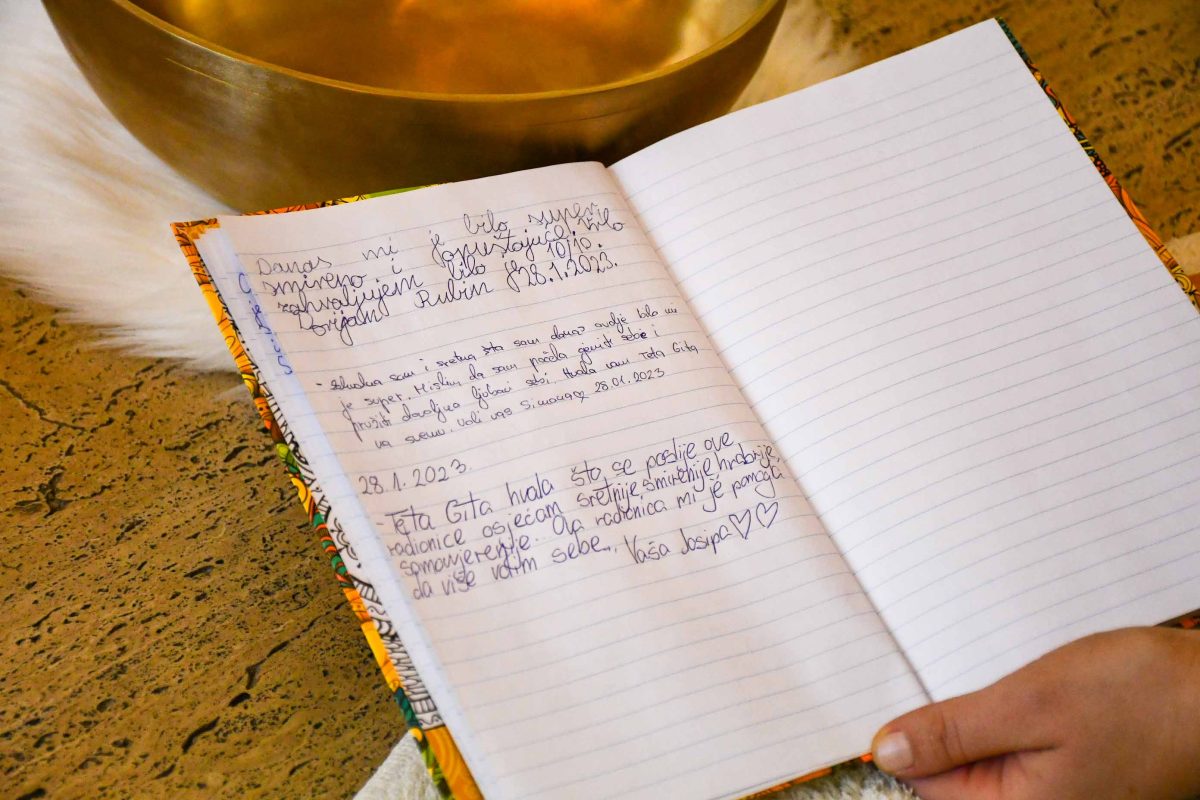 Danas mi je bilo super
smireno i opuštajuće, bilo
zahvaljujem bilo je 10/10.
Dorijan Rubin 28.1.2023.
- Zahvalna sam i sretna šta sam danas ovdje bilo mi
je super. Mislim da sam počela cjeniti sebe i
pružiti dovoljno ljubavi sebi. Hvala vam Teta Gita
na svemu. Voli vas Simona♡ 28.01.2023
28.1.2023.
- Teta Gita hvala što se poslije ove
radionice osjećam sretnije, smirenije, hrabrije,
samouvjerenije. Ova radionica mi je pomogla
da više volim sebe. Vaša Josipa♡♡